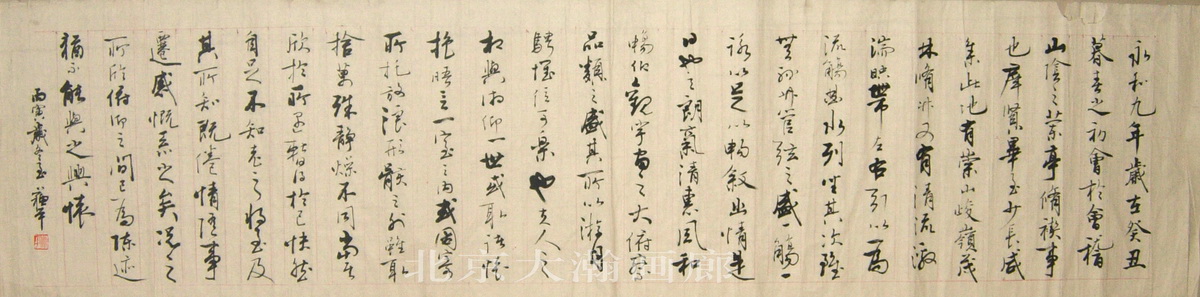 永和九年歲在癸丑
暮春之初會於會稽
山陰之蘭亭脩禊事
也群賢畢至少長咸
集此地有崇山峻嶺茂
林脩竹又有清流激
湍映帶左右引以為
流觴曲水列坐其次雖
無絲竹管弦之盛一觴一
詠亦足以暢敘幽情是
日也天朗氣清惠風和
暢仰觀宇宙之大俯察
品類之盛其所以遊目
騁懷信可樂也夫人之
相與俯仰一世或取諸懷
抱晤言一室之內或因寄
所托放浪形骸之外雖取
捨萬殊靜燥不同當其
欣於所遇暫得於己快然
自足不知老之將至及
其所知既倦情隨事
遷感慨系之矣之
所欣俯仰之間已為陳迹
猶不能與之興懷
丙寅歲冬至
北京大瀚画廊